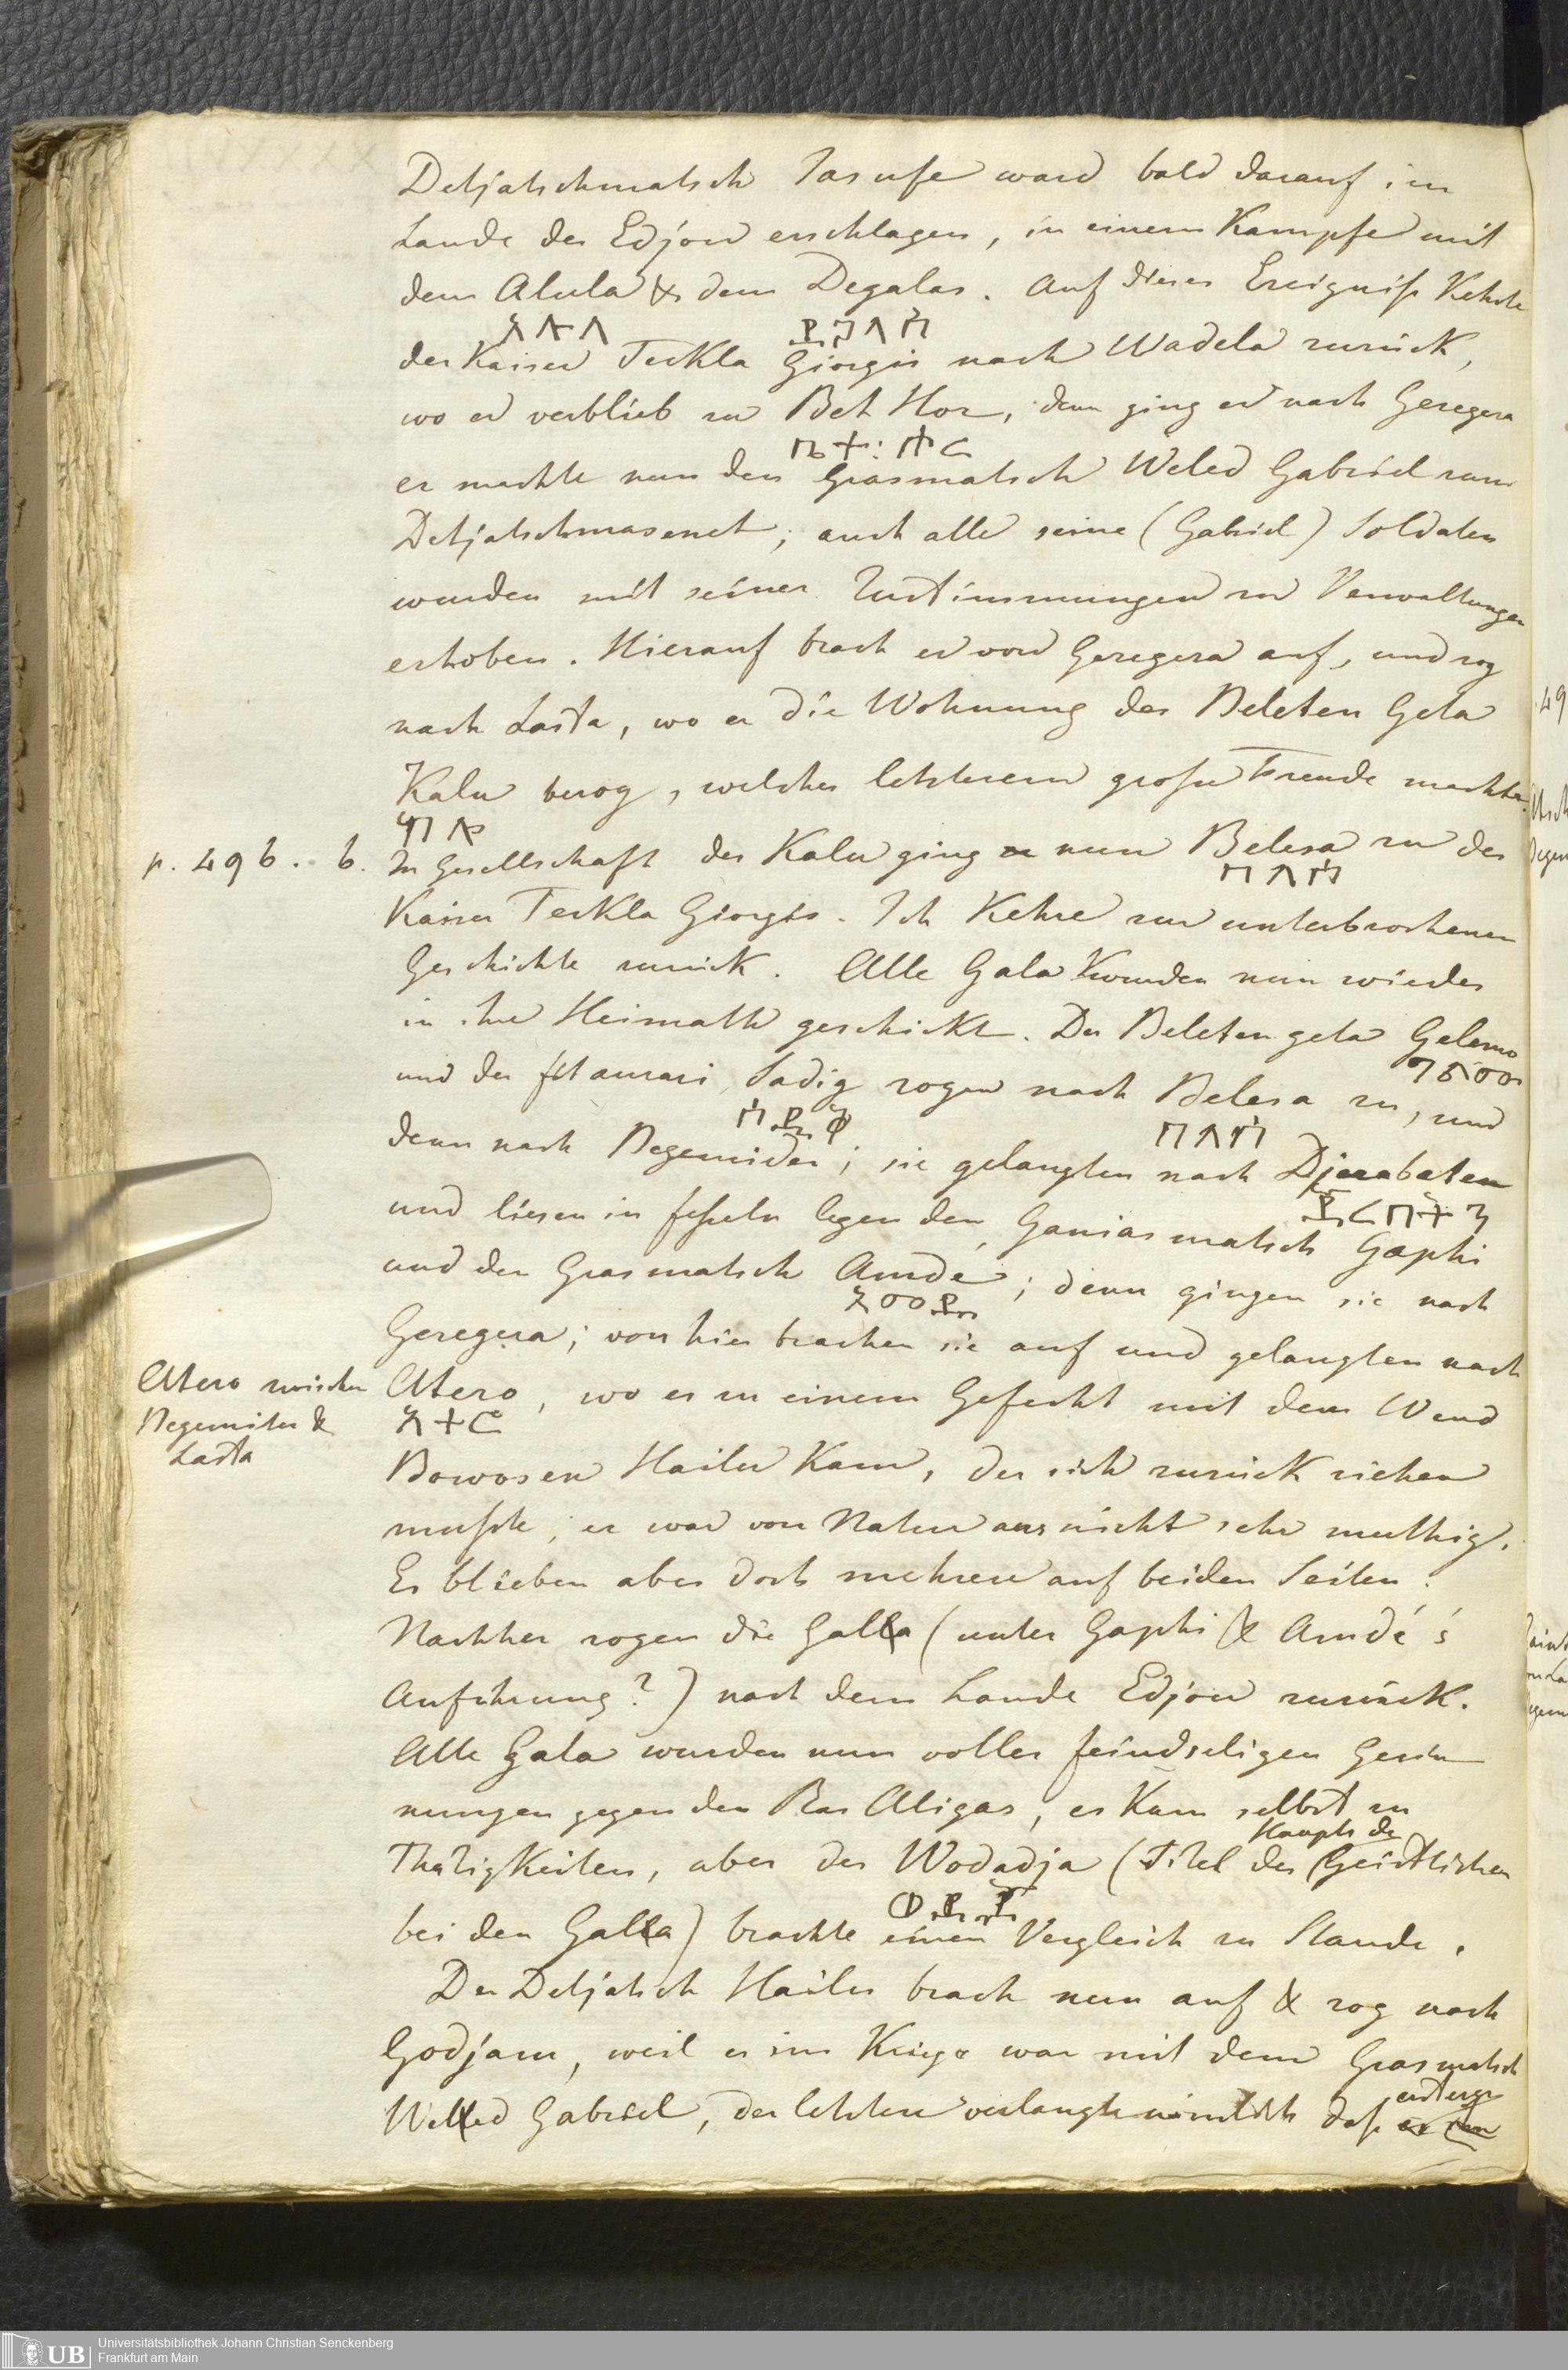 Detjatschmatsch Jasufe ward bald darauf im
Lande der Edjow erschlagen, in einem Kampfe mit
dem Alula & dem Degalas. Auf dieses Ereigniß Kehrte
አሉላ ደጋላስ
der Kaiser Teckla Giorgis nach Wadela zurück,
wo er verblieb zu Bet Hor, dann ging er nach Geregera
ቤት: ሖር
er machte nun den Grasmatsch Weled Gabriel zum
Detjatschmasenet; auch alle seine (Gabriel) Soldaten
wurden mit seiner Zustimmungen zu Verwaltungen
erhoben. Hierauf brach er von Geregera auf, und zog
nach Lasta, wo er die Wohnung des Beleten Geta
Kalu bezog, welches letzterem große Freude machte.
ኃሉ
p. 496. b. In Gesellschaft des Kalu ging er nun Belesa zu der
በለሳ
Kaiser Teckla Giorgis. Ich Kehre zur unterbrochenen
Geschichte zurück. Alle Gala wurden nun wieder
in ihre Heimath geschickt. Der Beleten geta Gelemo
und der fitaurari Sadig zogen nach Belesa zu, und
ሳዲቅ በለሳ
dann nach Begemider; sie gelangten nach Djerabeten
ጀርበትን
und liesen in feßeln legen den Ganiasmatsch Gaphi
und den Grasmatsch Amdé; dann gingen sie nach
አመዴ
Geregera; von hier brachen sie auf und gelangten nach
Atero zwischen
Begemiter &
Lasta
Atero, wo es zu einem Gefecht mit dem Wend
አትሮ
Bowosen Hailu Kam, der sich zurück ziehen
mußte, er war von Natur aus nicht sehr muthig.
Es blieben aber doch mehrere auf beiden Seiten.
Nachher zogen die Galla (unter Gaphi & Amdé's
Anführung?) nach dem Lande Edjow zurück.
Alle Gala wurden nun voller feindseligen Gesin
nungen gegen den Ras Aligas, es Kam selbst zu
Thätigkeiten, aber der Wodadja (Titel des Haupts der Geistlichen
ወዳጃ
bei den Galla) brachte einen Vergleich zu Stande.
Der Detjatsch Hailu brach nun auf & zog nach
Godjam, weil er im Kriege war mit dem Grasmatsch
Welled Gabriel, der letztere verlangte nämlich daß